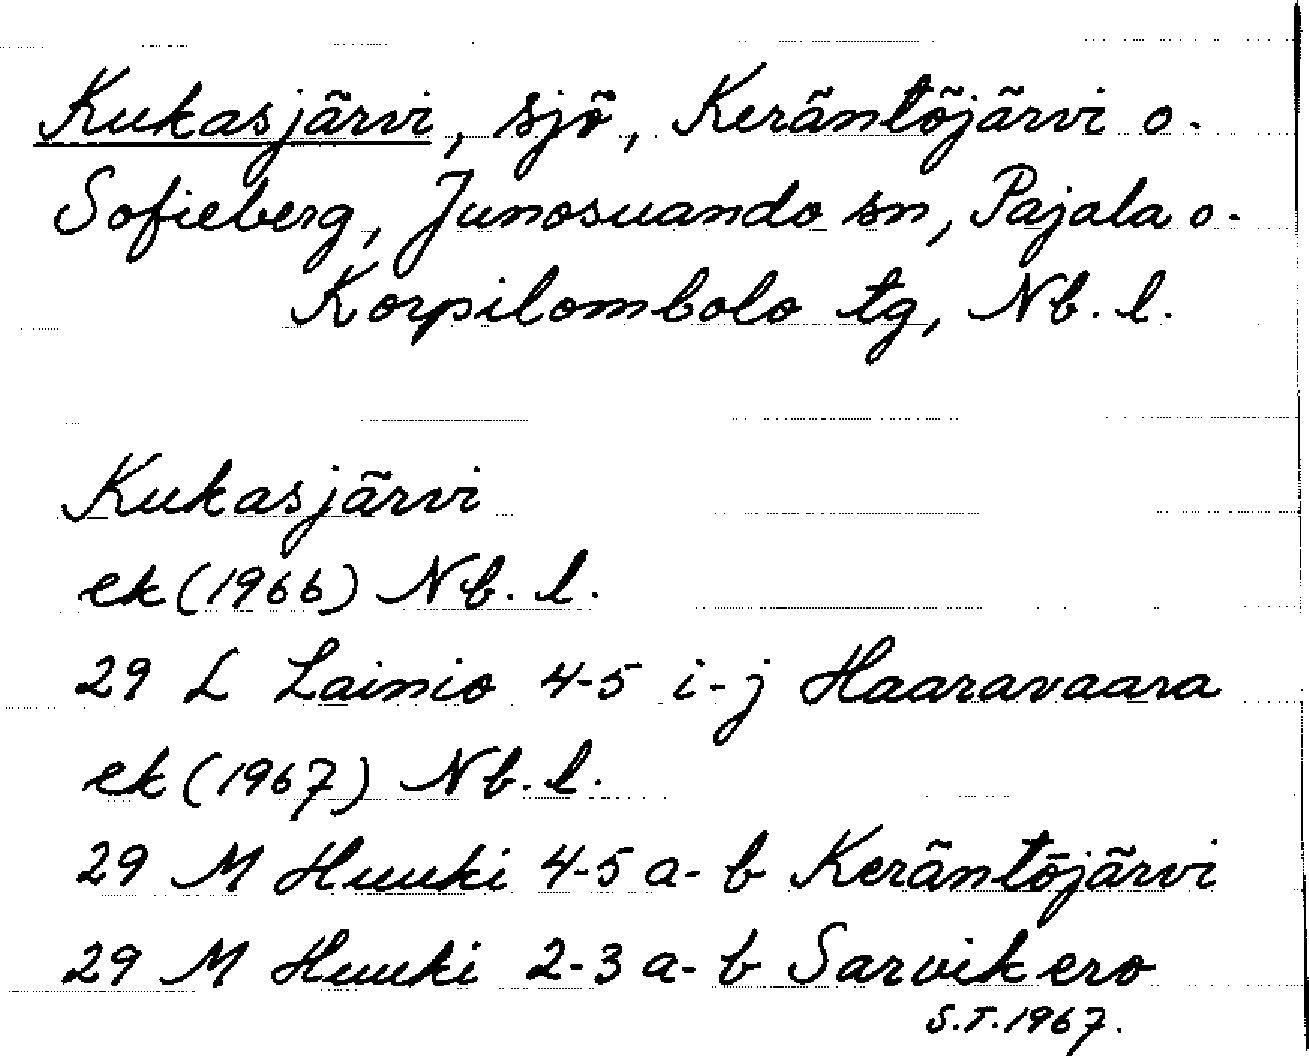 Kukasjärvi, sjö, Keräntöjärvi o.
Sofieberg, Junosuando sn, Pajala o.
Korpilombolo tg, Nb. l.
Kukasjärvi
ek (1966) Nb. l.
29 L Lainio 4-5 i-j Haaravaara
ek (1967) Nb. l.
29 M Huuki 4-5 a-b Keräntöjärvi
29 M Huuki 2-3 a-b Sarvikero
S.T. 1967.